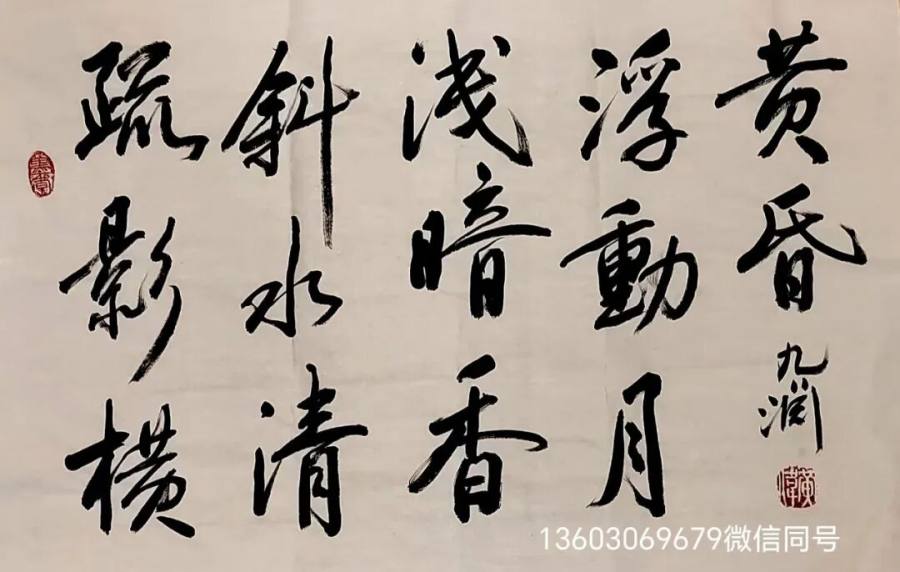 疏影橫
斜水清
浅暗香
浮動月
黄昏
九润
13603069679微信同号